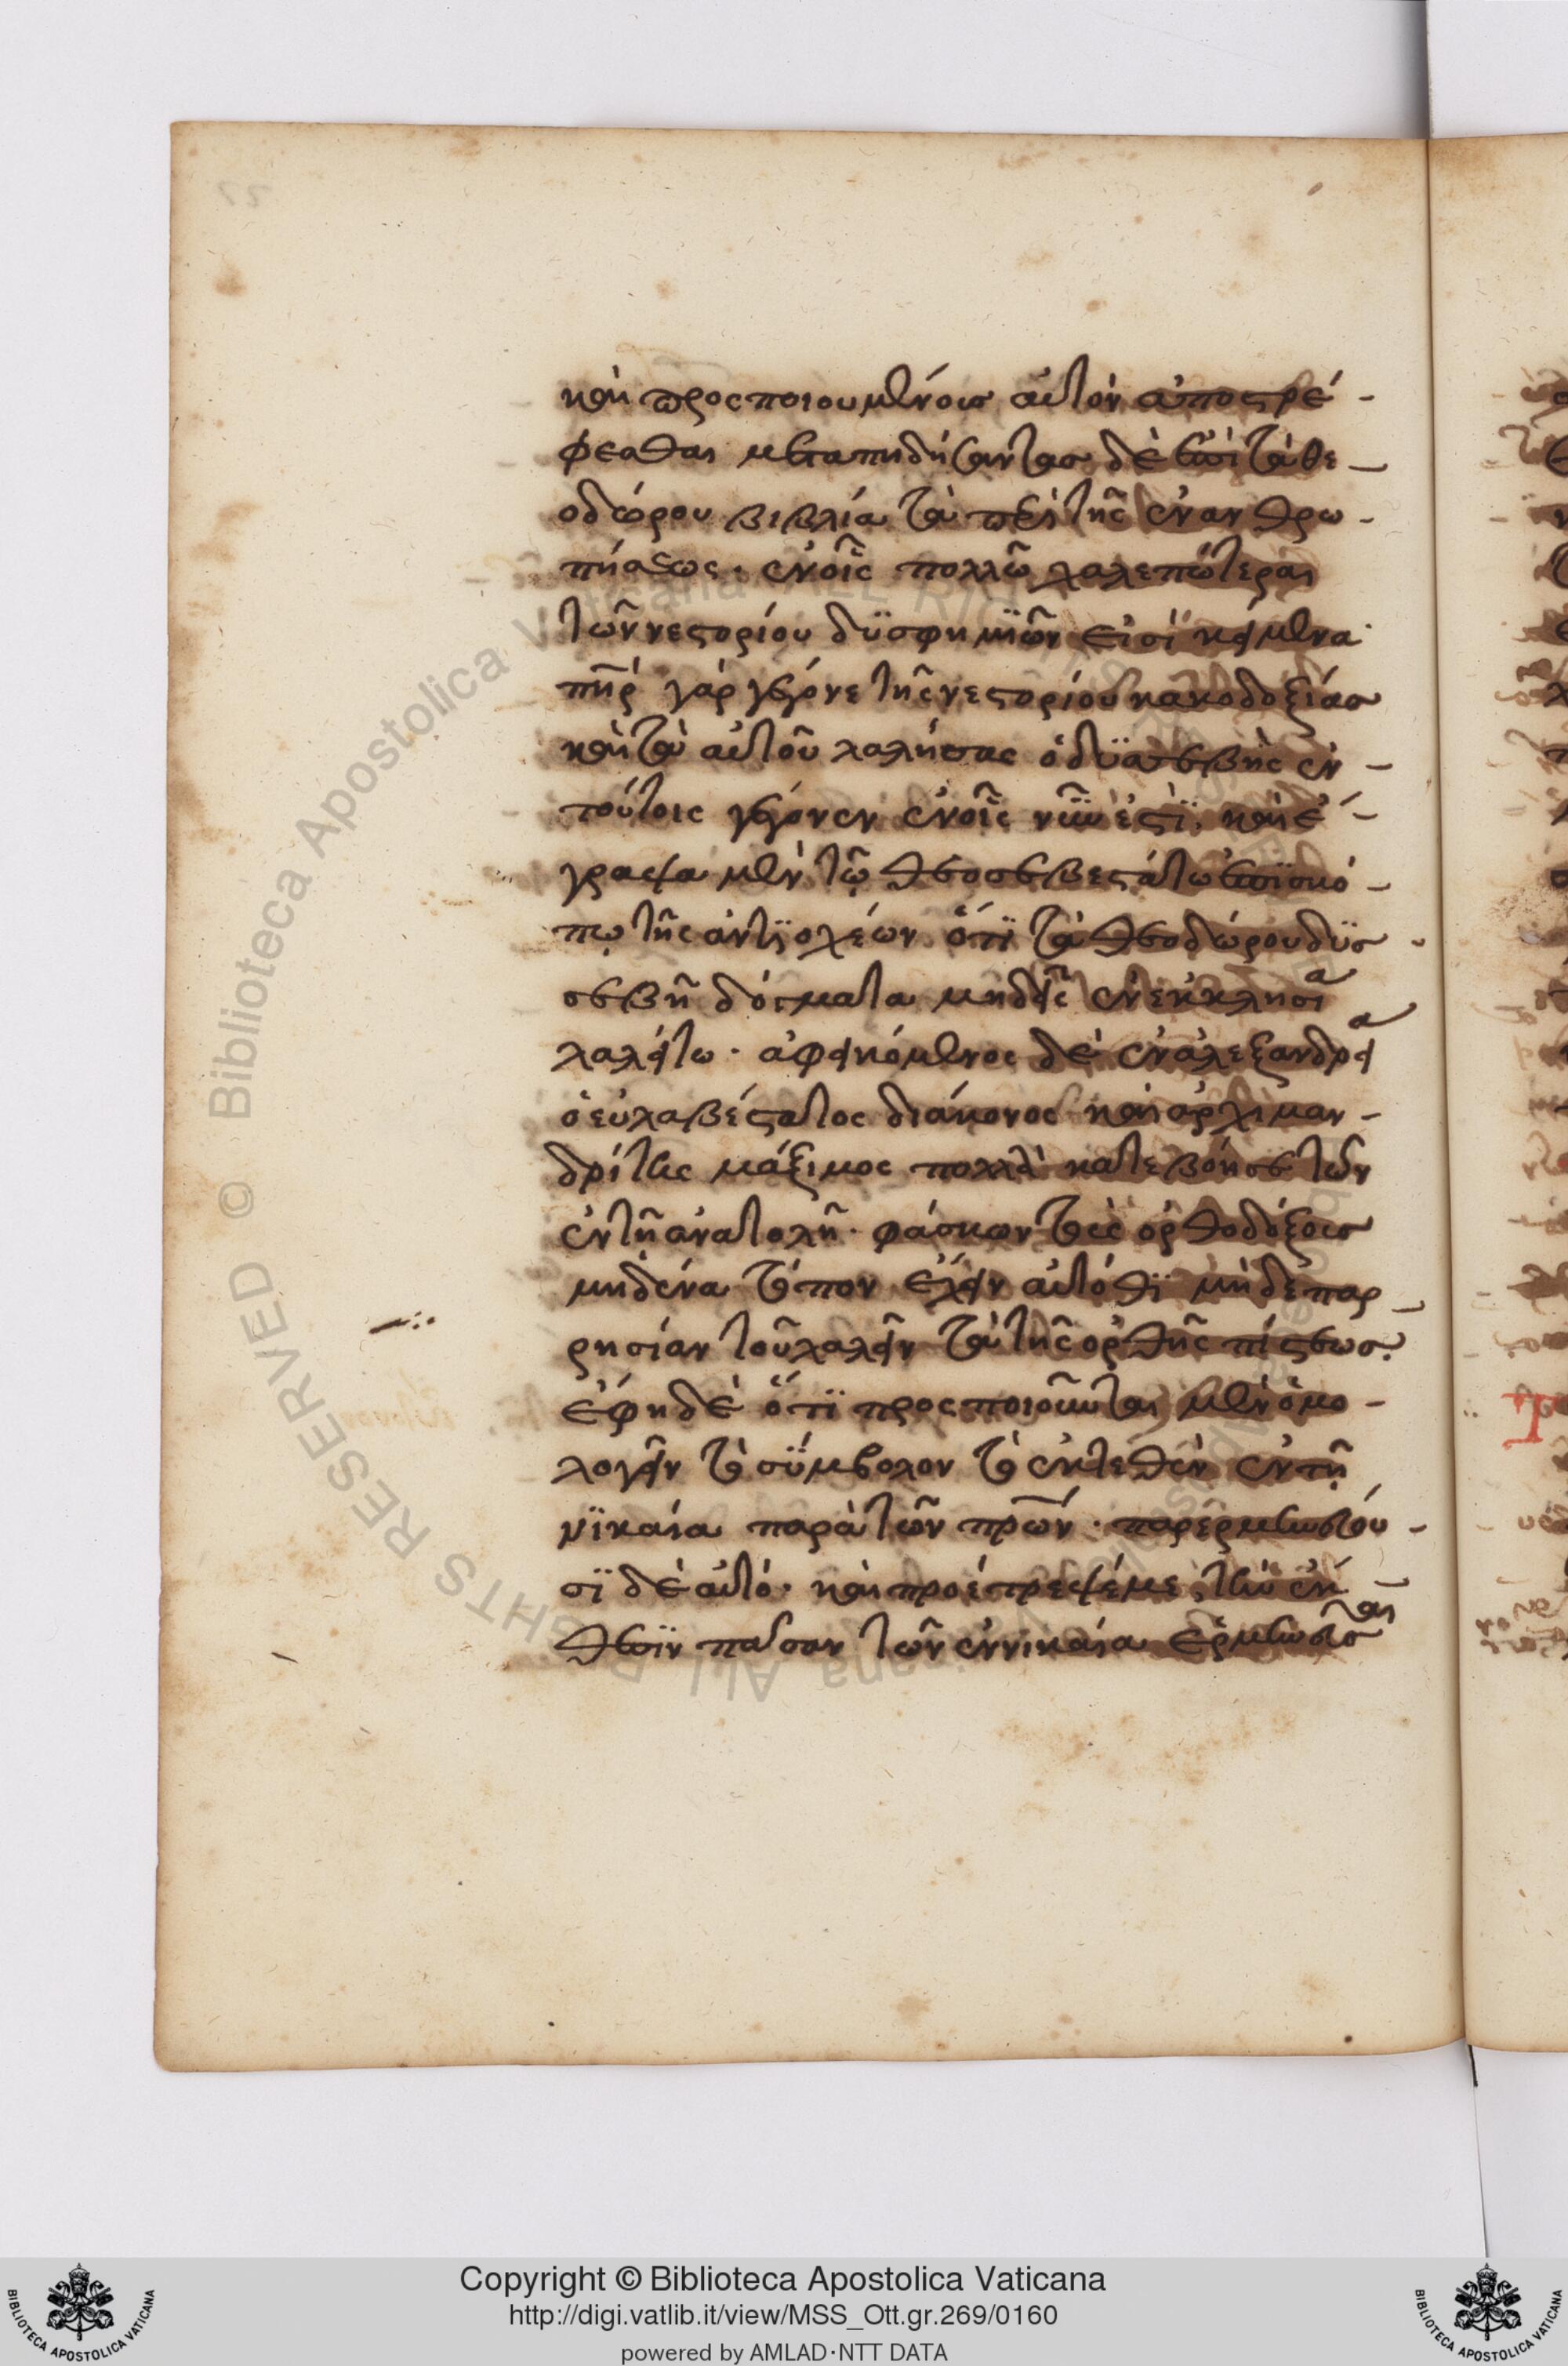 καὶ προσποιουμένους αὐτὸν ἀποστρέ-
φεσθαι μεταπηδήσαντας δὲ ἐπὶ τὰ θε-
οδώρου βιβλία τὰ περὶ τῆς ἐνανθρω-
πήσεως · ἐν οἷς πολλῶ χαλεπώτεραι
τῶν νεστορίου δϋσφημϊῶν εἰσὶ κείμενα
πῆρ γὰρ γέγόνε τῆς νεστορίου κακοδοξίας
καὶ τὰ αὐτοῦ λαλήσας ὁ δϋσσεβὴς ἐν -
τούτοις γέγονεν ἐν οἷς νῦν ἐστϊ. καὶ ἔ -
γραψα μὲν τῷ θεοσεβεστάτω ἐπϊσκό -
πῳ τῆς ἀντϊοχέων ὅτϊ τὰ θεοδώρου δϋσ
σεβῆ δόγματα μηδεὶς ἐν ἐκκλησία
λαλείτω · ἀφεικόμενος δὲ ἐν ἀλεξανδρεία
ὁ εὐλαβέστατος διάκονος καὶ ἀρχιμαν -
δρίτης μάξιμος πολλὰ κατεβόησε τῶν
ἐν τῆ ἀνατολῆ · φάσκων τοὺς ὀρθοδόξους
μηδένα τόπον ἔχειν αὐτόθϊ μὴδὲ παρ -
ρησίαν τοῦ λαλεῖν τὰ τῆς ὀρθῆς πίστεως.
ἔφη δὲ ὅτϊ προσποιοῦνται μὲν ὁμο -
λογεῖν τὸ σϋμβολον τὸ ἐκτεθὲν ἐν τῇ
νϊκαία παρὰ τῶν πρων · παρερμηνεύου -
σϊ δὲ αὐτό · καὶ προέτρεψέ με τὴν ἔκ -
θεσϊν πᾶσαν τῶν ἐν νικαία ἑρμηνεῦσαι
Copyright © Biblioteca Apostolica Vaticana
http://digi.vatlib.it/view/MSS_Ott.gr.269/0160
powered by AMLAD·NTT DATA